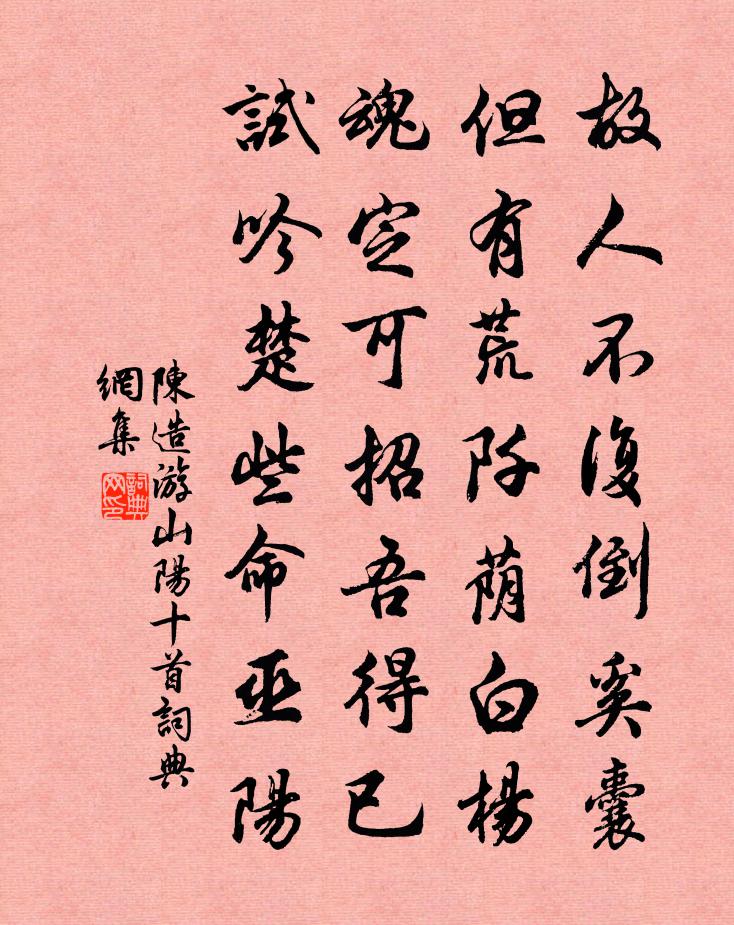 故人不復倒奚囊
但有荒阡荫白楊
魂定可招吾得已
試吟楚些命巫陽
陳造游山陽十首詞典
網集
詞典
网印